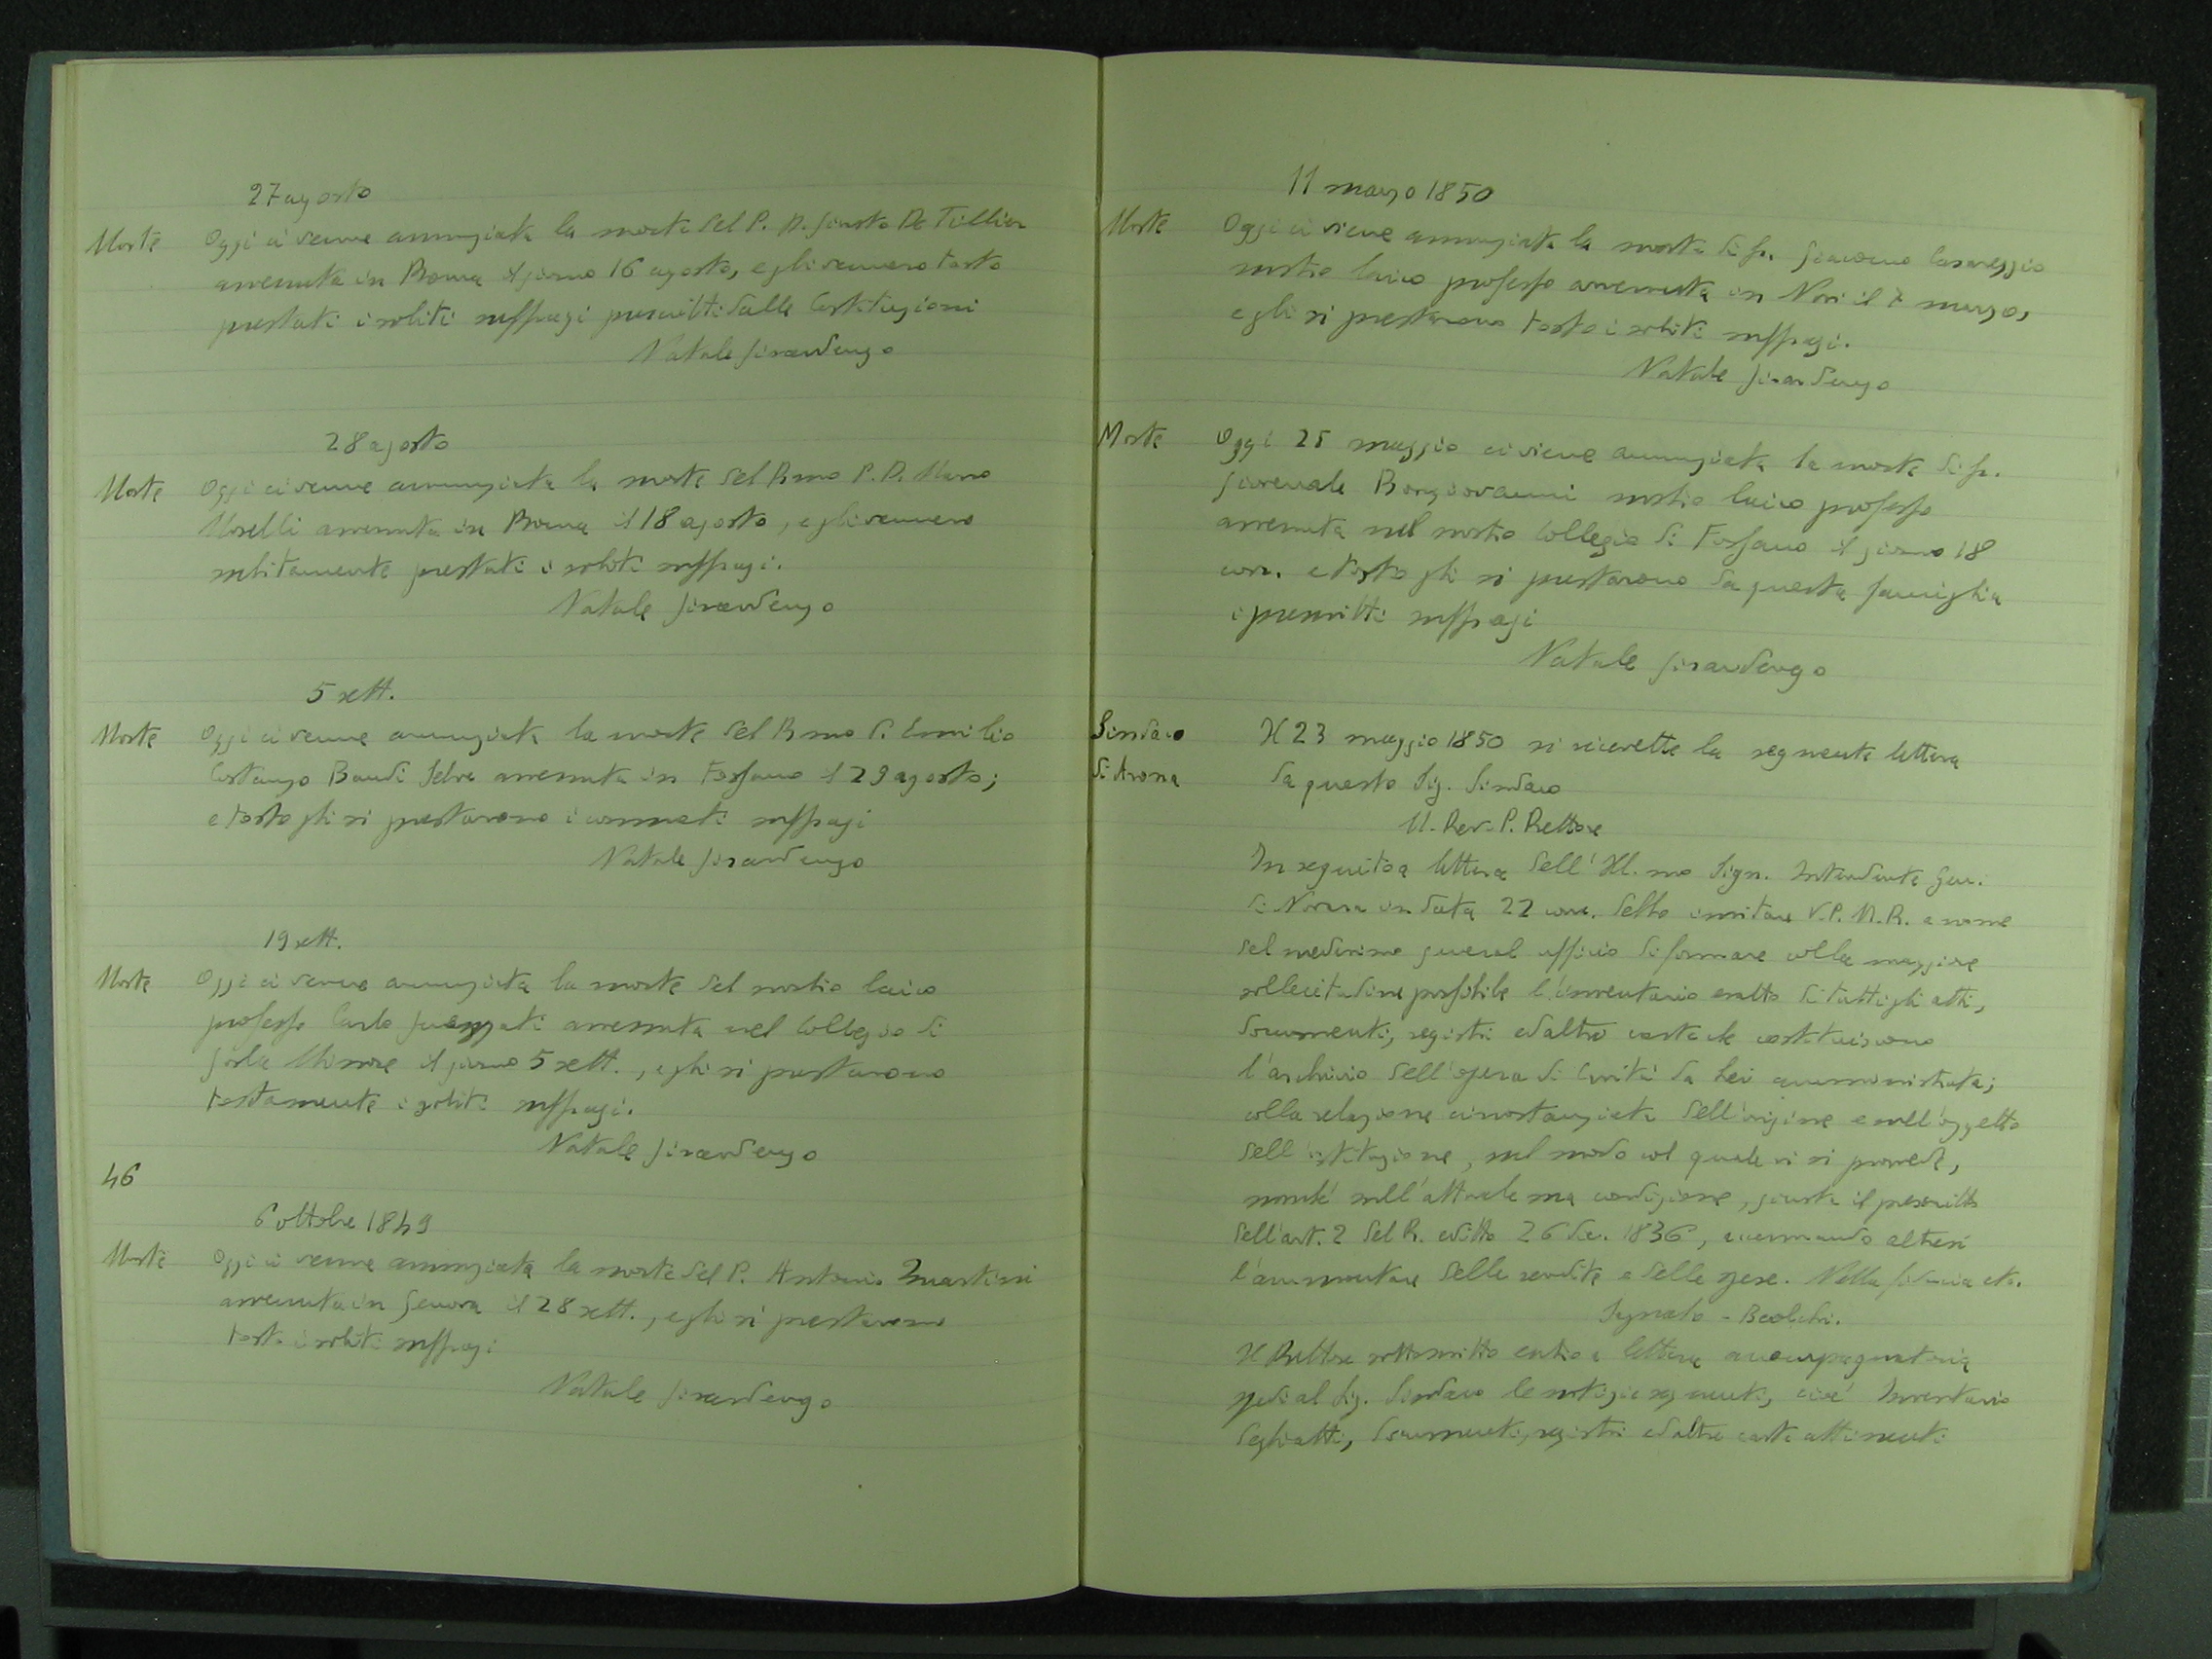 27 agosto
Morte Oggi ci venne annunziata la morte del P. D. Giusto De Tillier
avvenuta in Roma il giorno 16 agosto, e gli vennero tosto
prestati i soliti suffragi prescritti dalle Costituzioni
Natale Girardengo
28 agosto
Morte Oggi ci venne annunziata la morte del R.mo P. D. Marco
Morelli avvenuta in Roma il 18 agosto, e gli vennero
solitamente prestati i soliti suffragi.
Natale Girardengo
5 sett.
Morte Oggi ci venne annunziata la morte del R.mo P. Emilio
Costanzo Baudi Selve avvenuta in Fossano il 29 agosto;
e tosto gli si prestarono i consueti suffragi
Natale Girardengo
19 sett.
Morte Oggi ci venne annunziata la morte del nostro laico
professo Carlo avvenuta nel Collegio di
Gorla Minore il giorno 5 sett., e gli si prestarono
tostamente i soliti suffragi.
Natale Girardengo
46
6 ottobre 1849
Morte Oggi ci venne annunziata la morte del P. Antonio
avvenuta in Genova il 28 sett., e gli si prestarono
tosto i soliti suffragi
Natale Girardengo
11 marzo 1850
Morte Oggi ci viene annunziata la morte di fr. Giacomo Casareggio
nostro laico professo avvenuta in Novi il 7 marzo,
e gli si prestarono tosto i soliti suffragi.
Natale Girardengo
Morte Oggi 25 maggio ci viene annunziata la morte di fr.
Giovenale Bongiovanni nostro laico professo
avvenuta nel nostro Collegio di Fossano il giorno 18
corr. e tosto gli si prestarono da questa famiglia
i prescritti suffragi
Natale Girardengo
Sindaco Il 23 maggio 1850 si ricevette la seguente lettera
di Arona da questo Sig. Sindaco
M. Rev. P. Rettore
In seguito a lettera dell'Ill.mo Sign. Intendente Gen.
di Novara in data 22 corr. debbo invitare V.P. M.R. a nome
del medesimo general ufficio di formare colla maggiore
sollecitudine possibile l'inventario esatto di tutti gli atti,
documenti, registri ed altre carte che costituiscono
l'archivio dell'opera di carità da Lei amministrata;
colla relazione circostanziata dell'origine e sull'oggetto
dell'istituzione, sul modo col quale vi si provede,
nonché sull'attuale sua condizione, giusta il prescritto
dell'art. 2 del R. editto 26 dic. 1836, accennando altresì
l'ammontare delle rendite e delle spese. Nella fiducia etc.
Segnato - Beolchi.
Il Rettore sottoscritto entro a lettera accompagnatoria
spedì al Sig. Sindaco le notizie seguenti, cioè Inventario
degli atti, documenti, registri ed altre carte attinenti